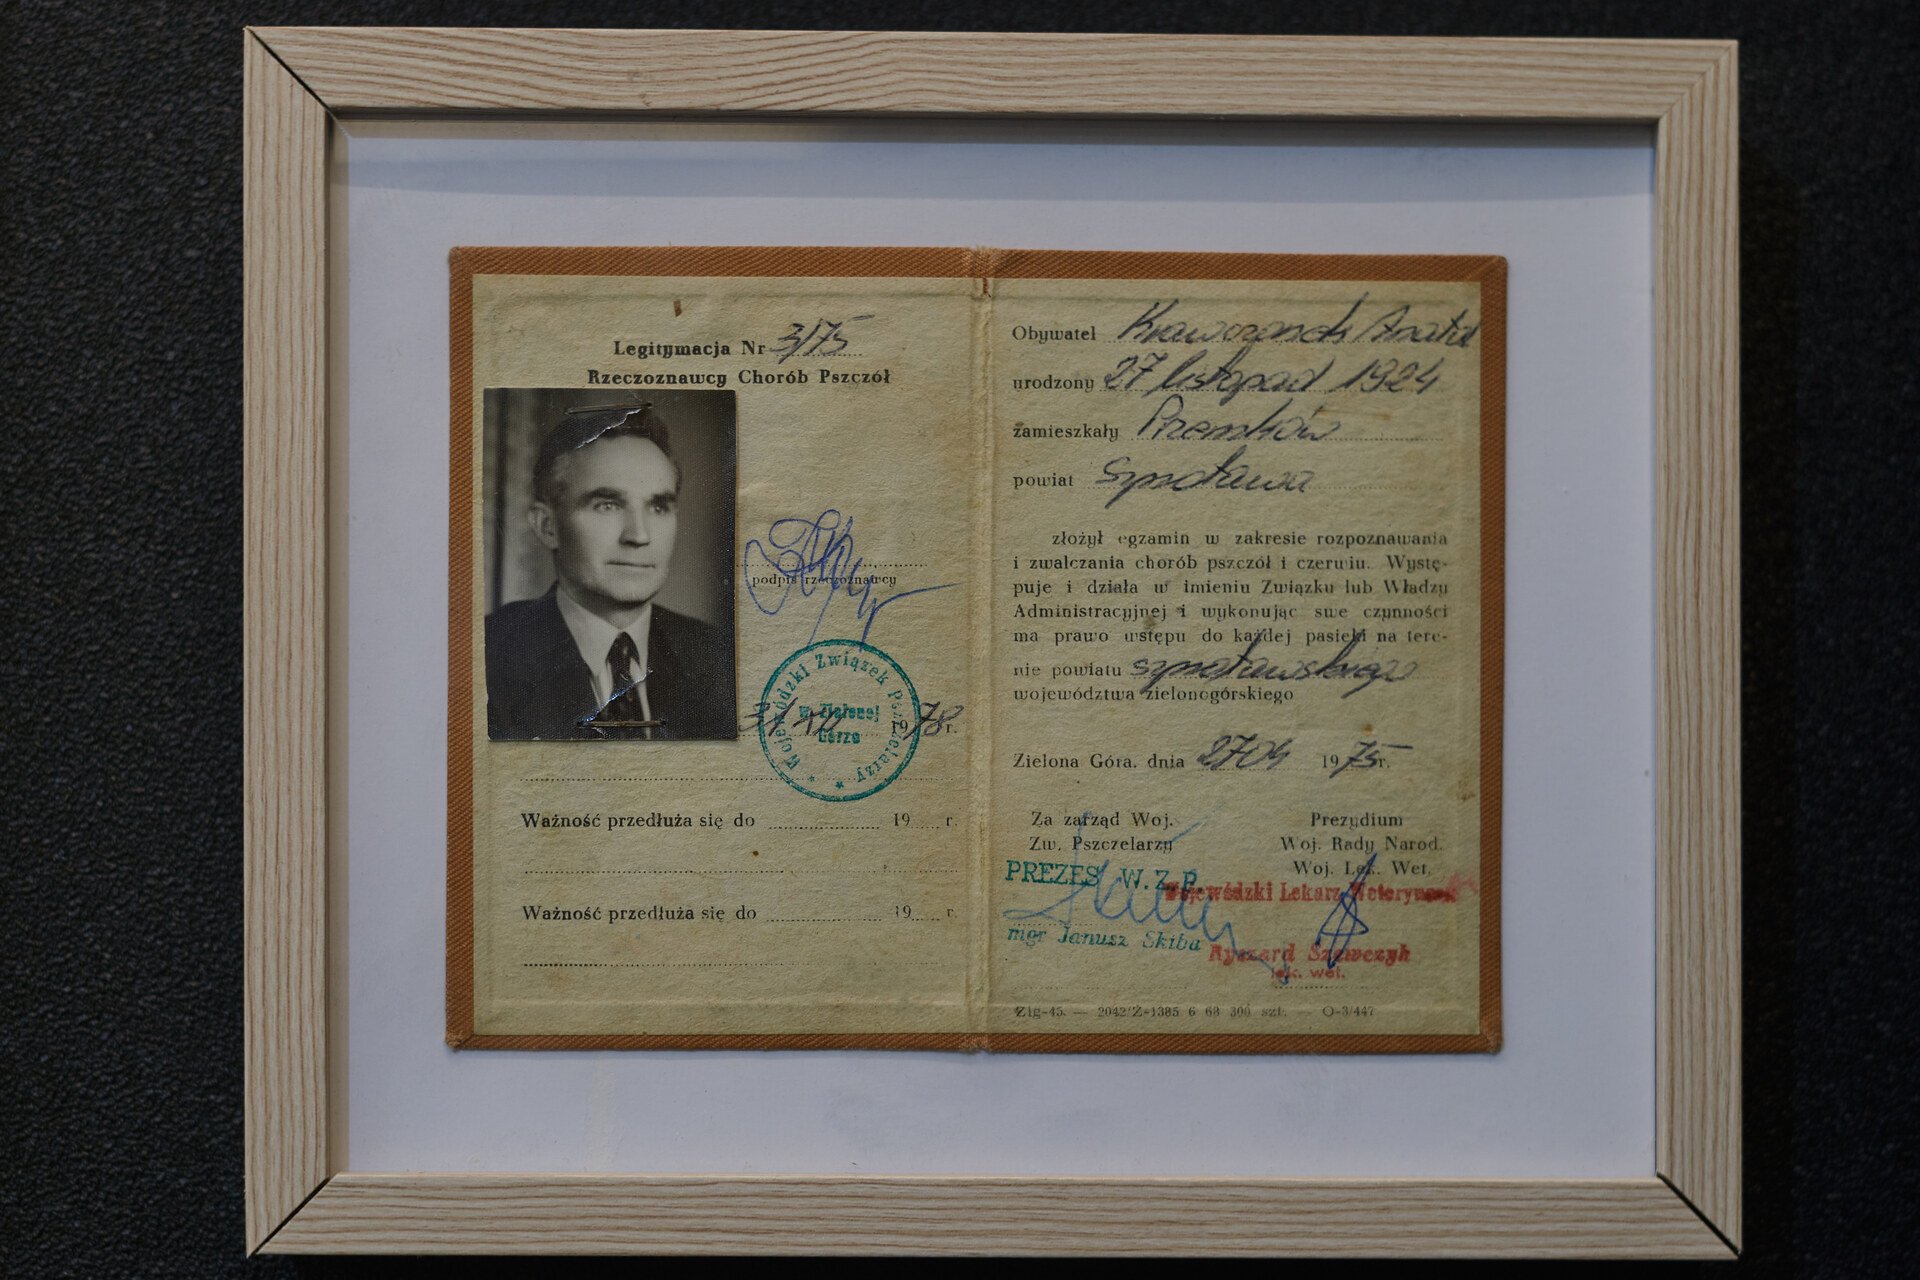 Legitymacja Nr 3/75
Rzeczoznawcy Chorób Pszczół
podpis rzeczoznawcy
Wojewódzki Związek Pszczelarzy
w Zielonej
Górze
31 1978 r.
Ważność przedłuża się do 19 r.
Ważność przedłuża się do 19 r.
Obywatel Anatol
urodzony 27 listopad 1924
zamieszkały Przemków
powiat Szprotawa
złożył egzamin w zakresie rozpoznawania
i zwalczania chorób pszczół i czerwiu. Wystę-
puje i działa w imieniu Związku lub Władzy
Administracyjnej i wykonując swe czynności
ma prawo wstępu do każdej pasieki na tere-
nie powiatu szprotawskiego
województwa zielonogórskiego
Zielona Góra, dnia 27 04 1975 r.
Za zarząd Woj.
Zw. Pszczelarzy
PREZES W.Z.P.
mgr Janusz Skiba
Prezydium
Woj. Rady Narod.
Woj. Lek. Wet.
Wojewódzki Lekarz Weterynarii
Ryszard Szewczyk
lek. wet.
Zig-45. — 2042/Z-1385 6 68 300 szt. — O-3/447